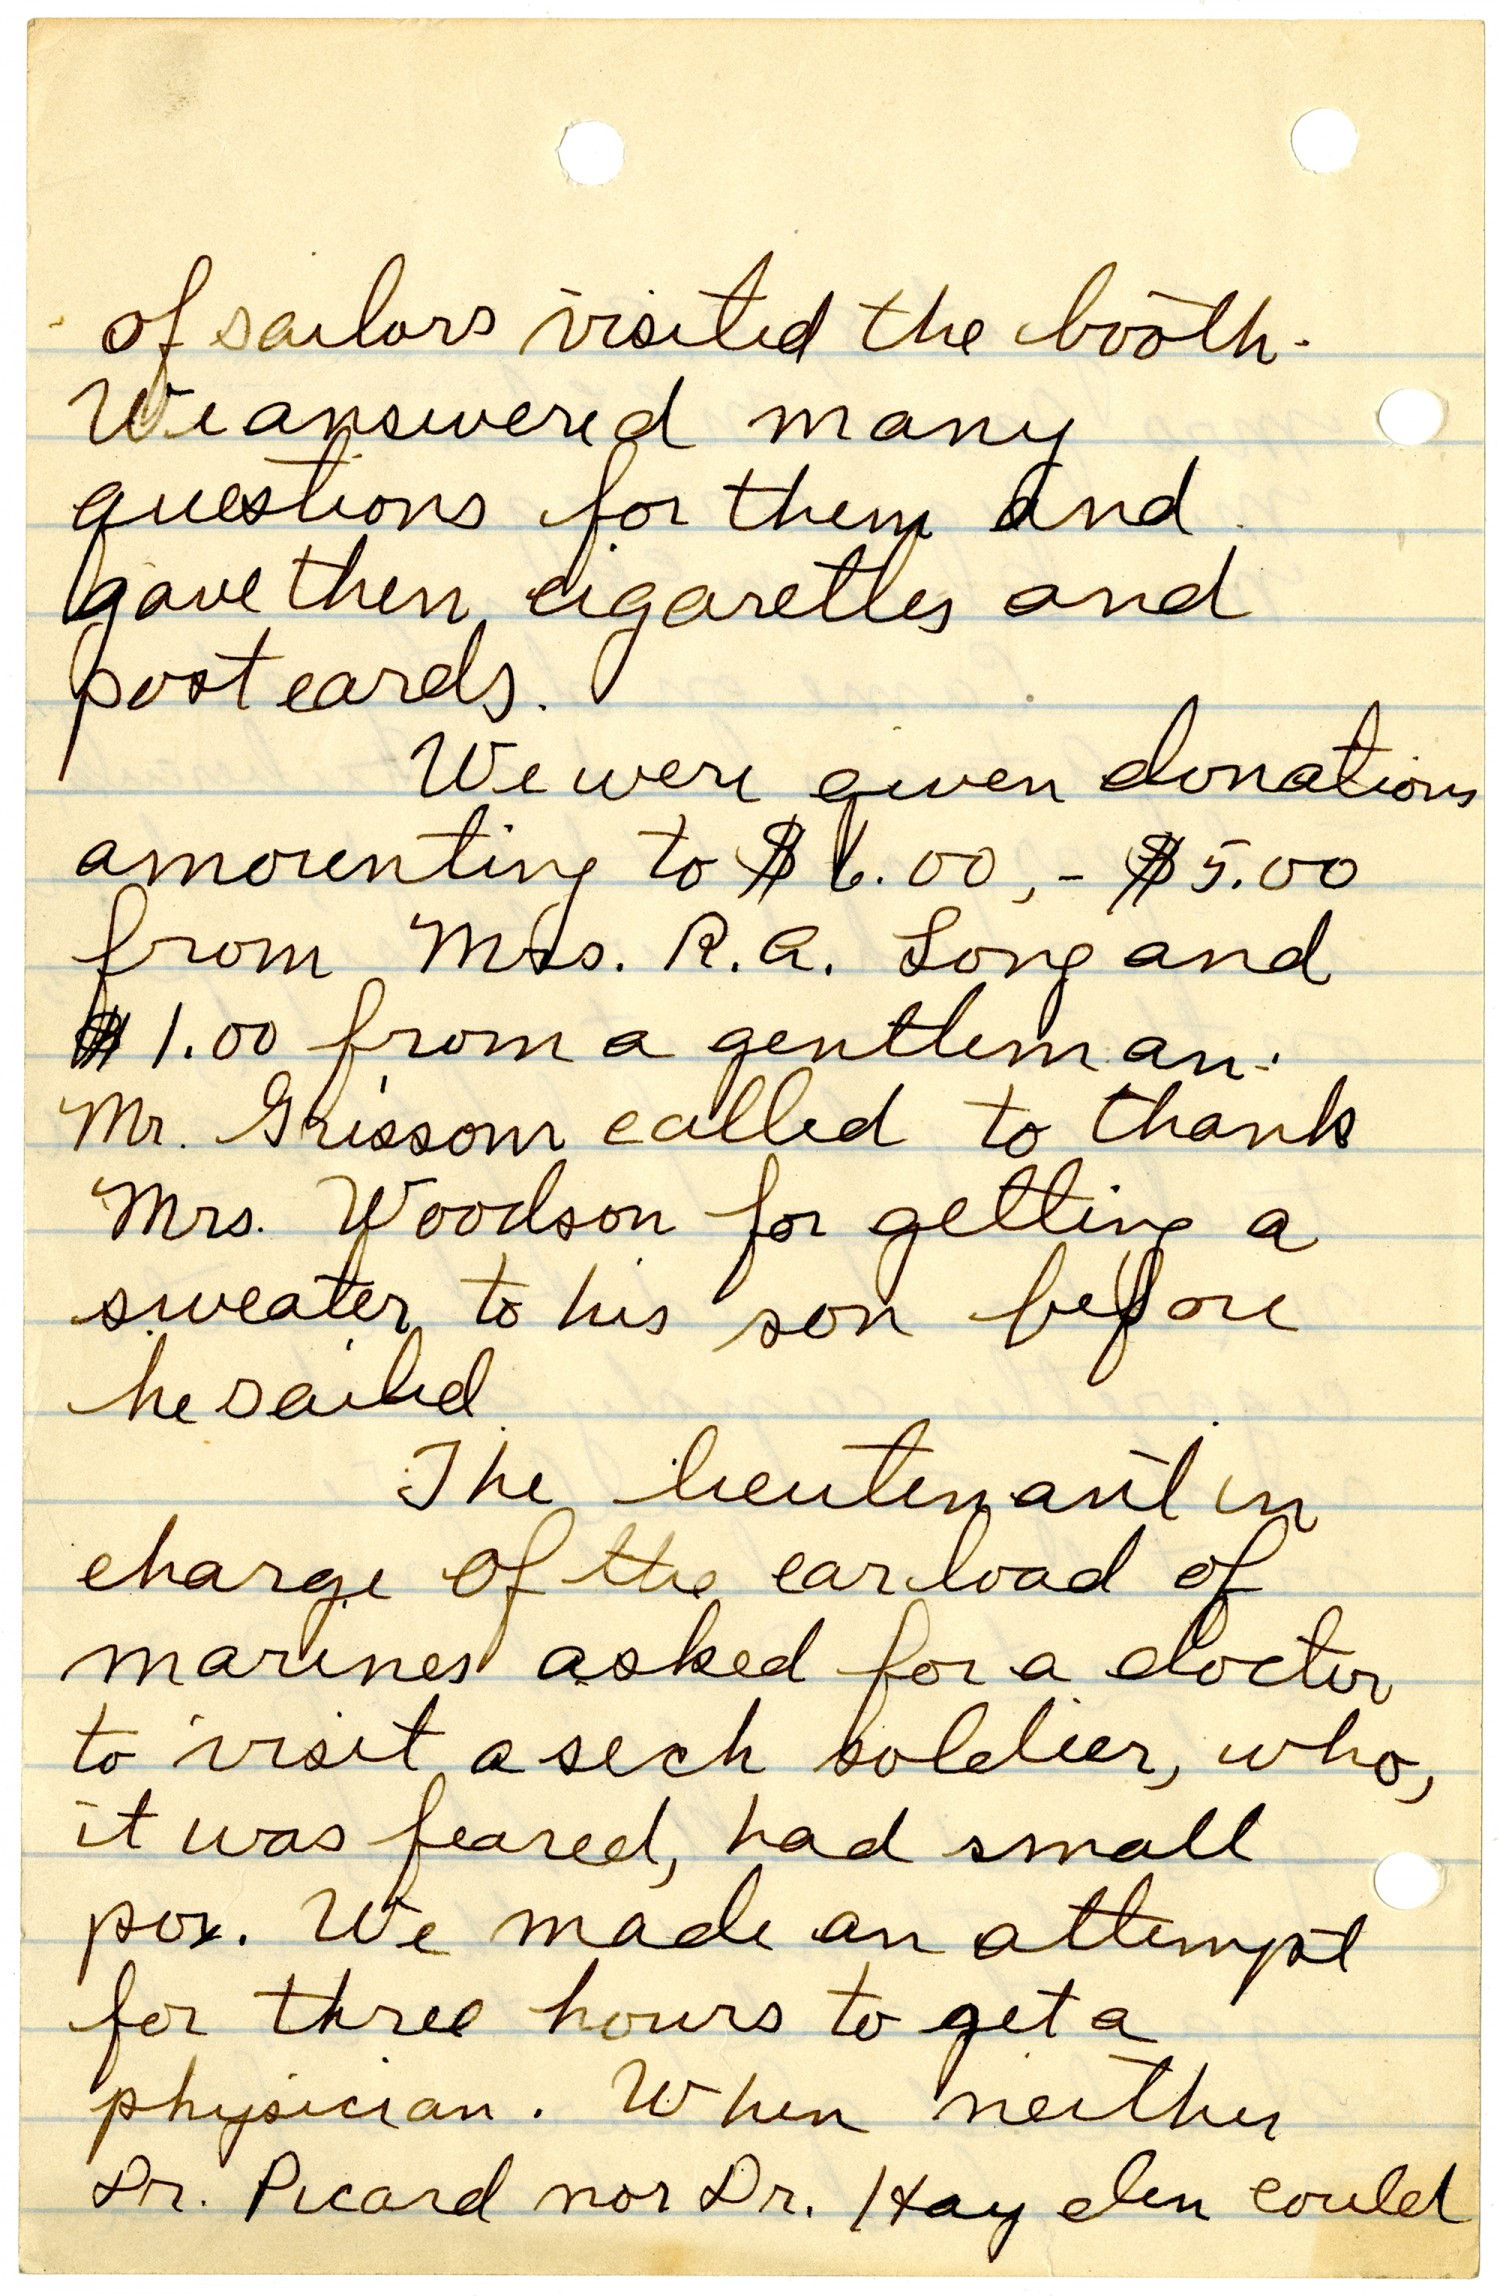 of sailors visited the booth.
We answered many
questions for them and
gave then cigarettes and
post cards.
We were given donations
amounting to $6.00, - $5.00
from Mrs. R.A. Long and
$1.00 from a gentleman.
Mr. Grissom called to thank
Mrs. Woodson for getting a
sweater to his son before
he sailed
The lieutenant in
charge of the carload of
marines asked for a doctor
to visit a sech soldier, who,
it was feared, had small
pox. We made an attempt
for three hours to get a
physician. When neither
Dr. Picard nor Dr. Hayden could